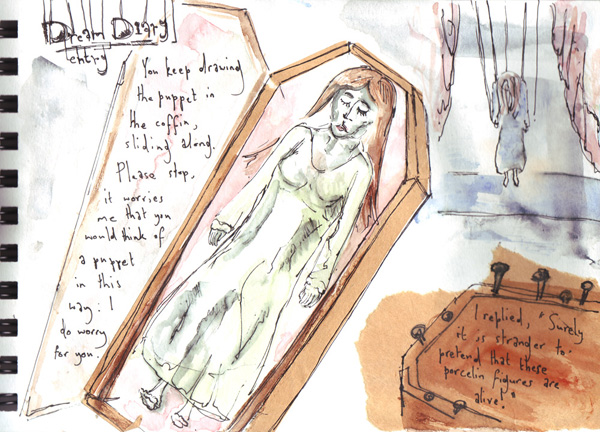 Dream Diary
entry
You keep drawing
the puppet in
the coffin,
sliding along.
Please stop,
it worries
me that you
would think of
a puppet
in this
way: I
do worry
for you.
I replied, "Surely
it is stranger to
pretend that these
porcelin figures are
alive!"